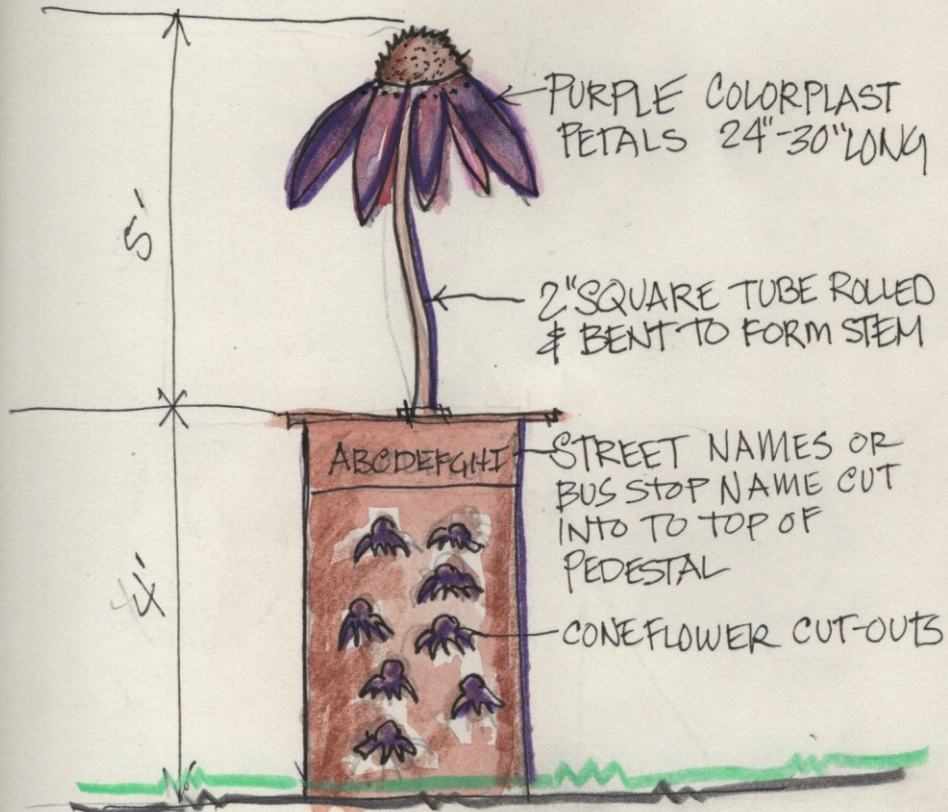 PURPLE COLORPLAST
PETALS 24"-30" LONG
5'
2" SQUARE TUBE ROLLED
& BENT TO FORM STEM
ABCDEFGHI
STREET NAMES OR
BUS STOP NAME CUT
INTO TO TOP OF
PEDESTAL
4'
CONEFLOWER CUT-OUTS